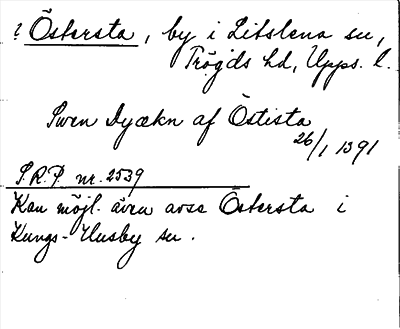 ? Östersta, by i Litslena sn,
Trögds hd, Upps. l.
Swen Dyækn af Östista
26/1 1391
S.R.P. nr. 2539
Kan möjl. även avse Östersta i
Kungs-Husby sn.